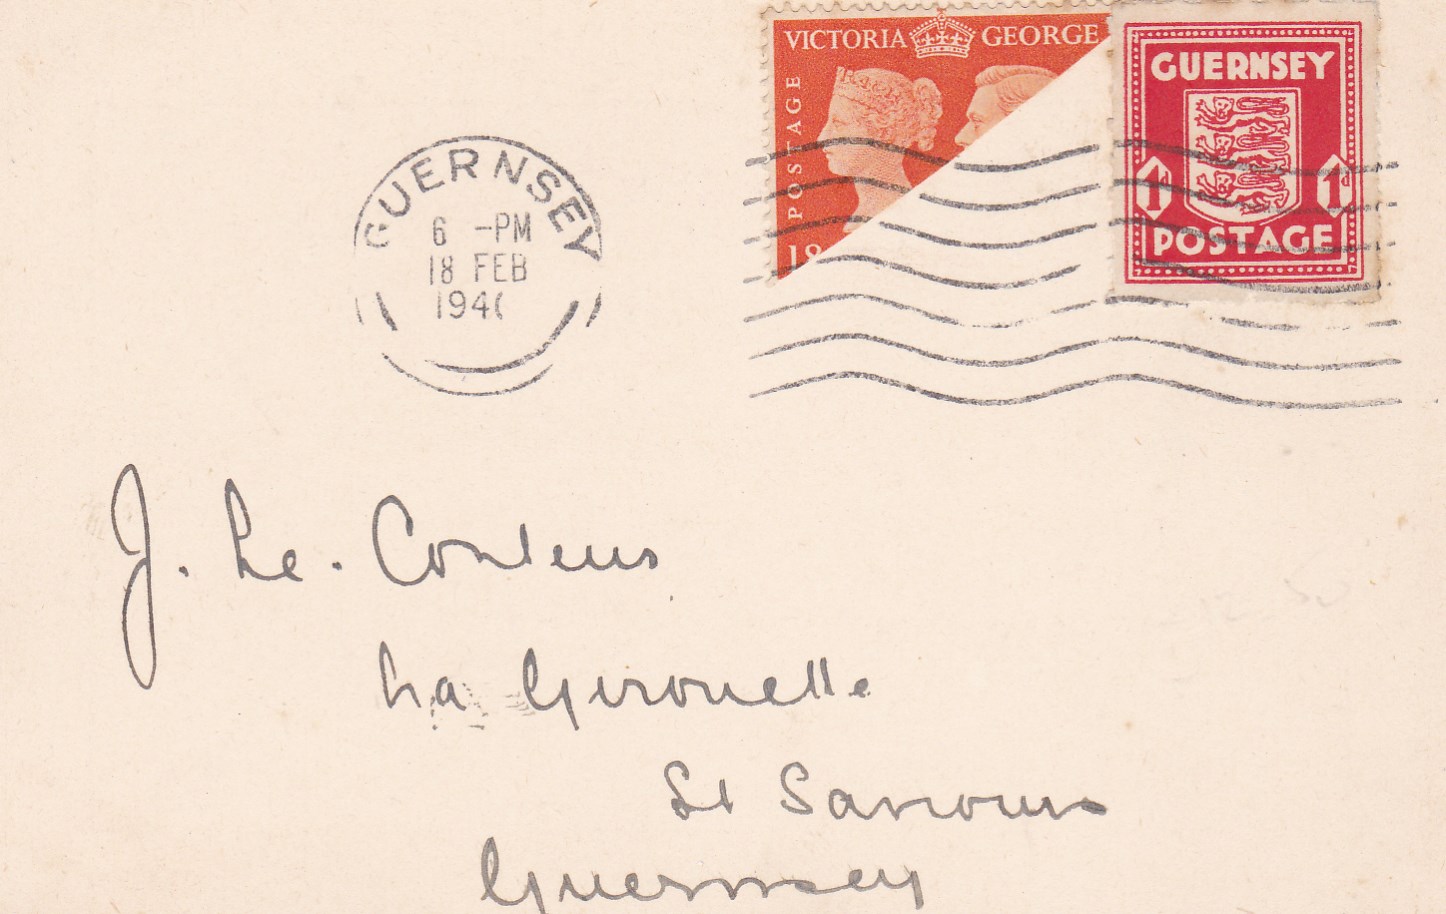 VICTORIA GEORGE
POSTAGE
18
GUERNSEY
1D 1D
POSTAGE
GUERNSEY
6 -PM
18 FEB
194
J. Le. Couteur
La Girouette
St Saviours
Guernsey